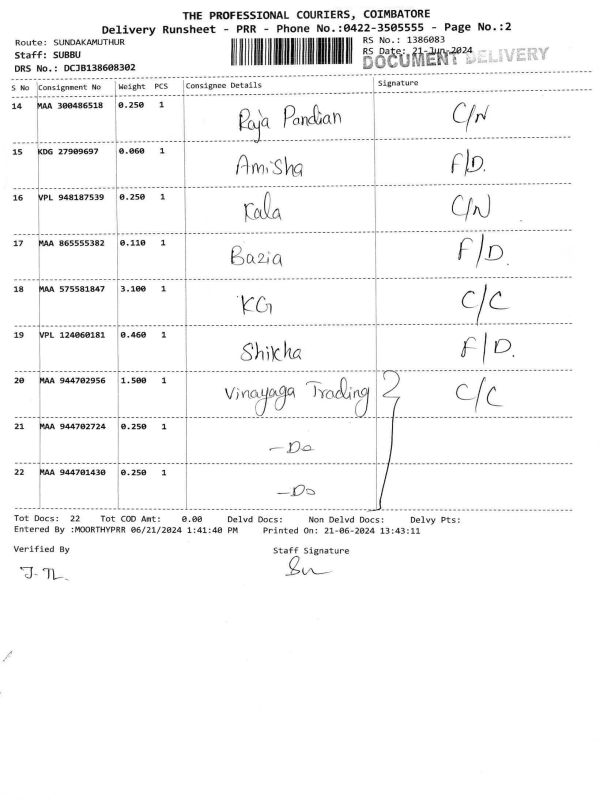 THE PROFESSIONAL COURIERS, COIMBATORE
Delivery Runsheet - PRR - Phone No.:0422-3505555 - Page No.:2
Route: SUNDAKAMUTHUR
RS No.: 1386083
Staff: SUBBU
RS Date: 21-Jun-2024
DOCUMENT DELIVERY
DRS No.: DCJB138608302
S No Consignment No Weight PCS Consignee Details Signature
14 MAA 300486518 0.250 1 Raja Pandian C/N
15 KDG 27909697 0.060 1 Amisha F/D.
16 VPL 948187539 0.250 1 Kala C/N
17 MAA 865555382 0.110 1 Bazia F/D.
18 MAA 575581847 3.100 1 KG C/C
19 VPL 124060181 0.460 1 Shikha F/D.
20 MAA 944702956 1.500 1 Vinayaga Trading C/C
21 MAA 944702724 0.250 1 -Do
22 MAA 944701430 0.250 1 -Do
Tot Docs: 22 Tot COD Amt: 0.00 Delvd Docs: Non Delvd Docs: Delvy Pts:
Entered By :MOORTHYPRR 06/21/2024 1:41:40 PM Printed On: 21-06-2024 13:43:11
Verified By Staff Signature